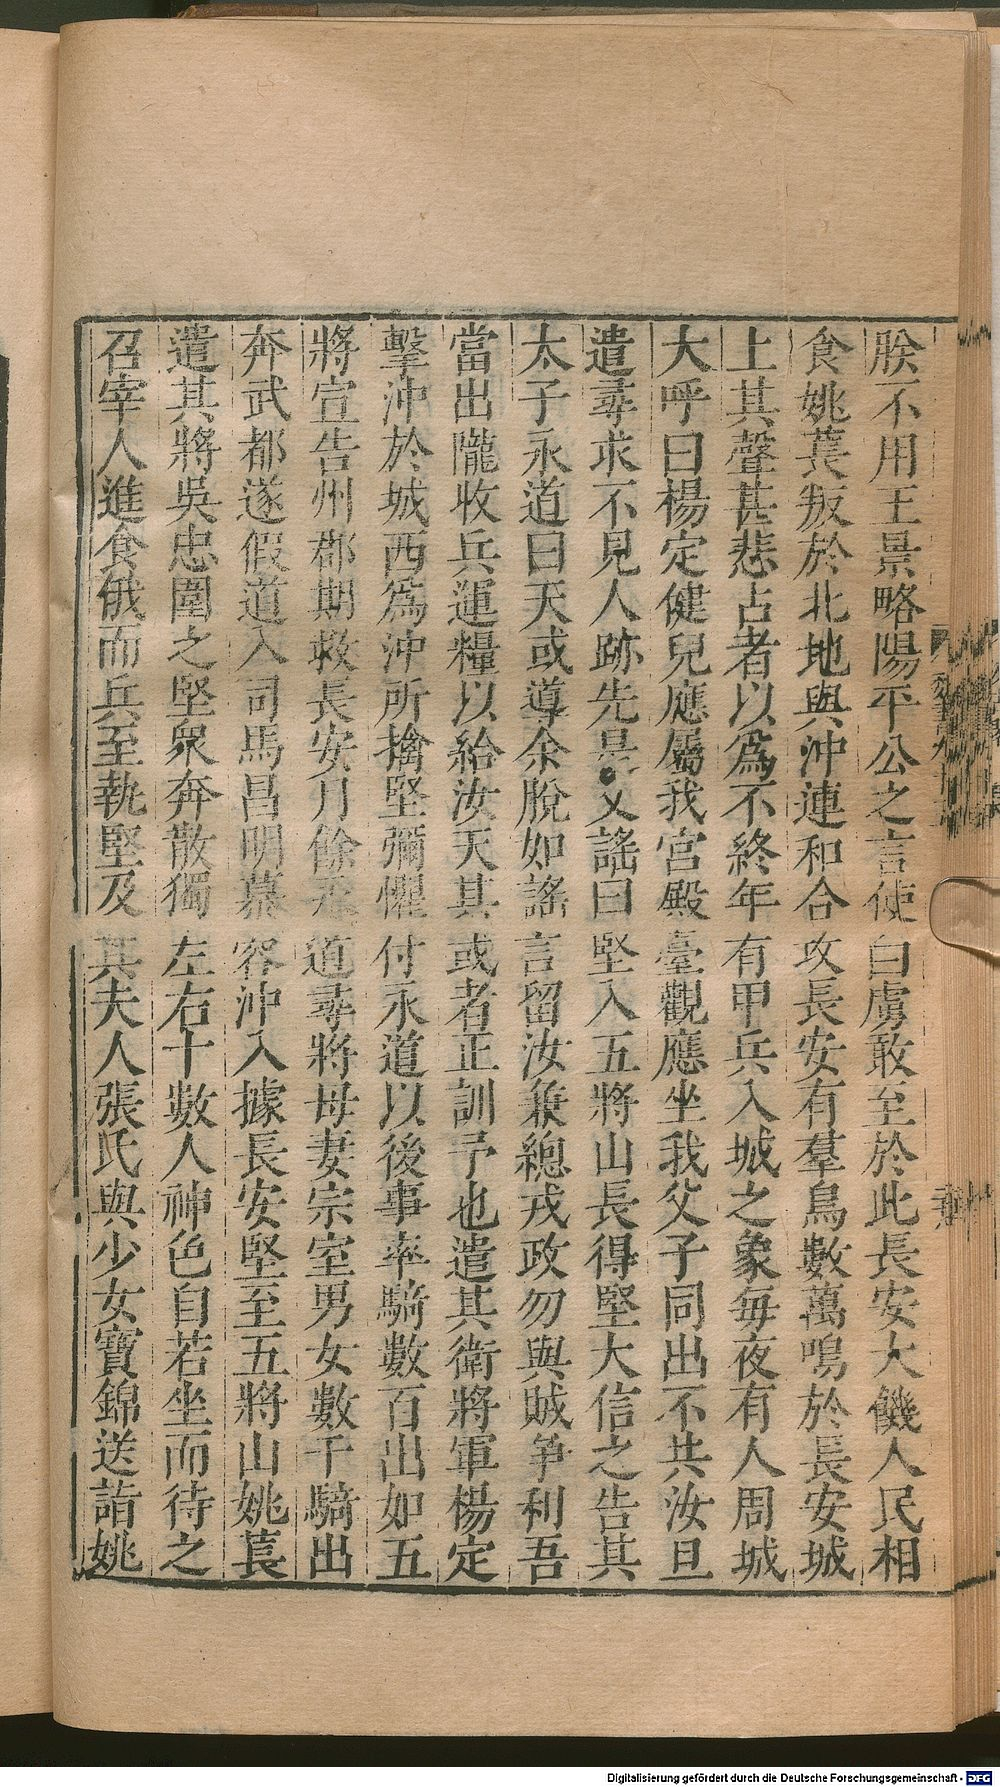 朕不用王景略陽平公之言使白虜敢至於此長安大饑人民相
食姚萇叛於北地與沖連和合攻長安有羣烏數萬鳴於長安城
上其聲甚悲占者以爲不終年有甲兵入城之象每夜有人周城
大呼曰楊定健兒應屬我宮殿臺觀應坐我父子同出不共汝旦
遣尋求不見人跡先是又謠曰堅入五將山長得堅大信之告其
太子永道曰天或導余脫如謠言留汝兼總戎政勿與賊爭利吾
當出隴收兵運糧以給汝天其或者正訓予也遣其衛將軍楊定
擊沖於城西爲沖所擒堅彌懼付永道以後事率騎數百出如五
將宣告州郡期救長安月餘永道尋將母妻宗室男女數千騎出
奔武都遂假道入司馬昌明慕容沖入據長安堅至五將山姚萇
遣其將吳忠圍之堅衆奔散獨左右十數人神色自若坐而待之
召宰人進食俄而兵至執堅及其夫人張氏與少女寶錦送詣姚
Digitalisierung gefördert durch die Deutsche Forschungsgemeinschaft - DFG